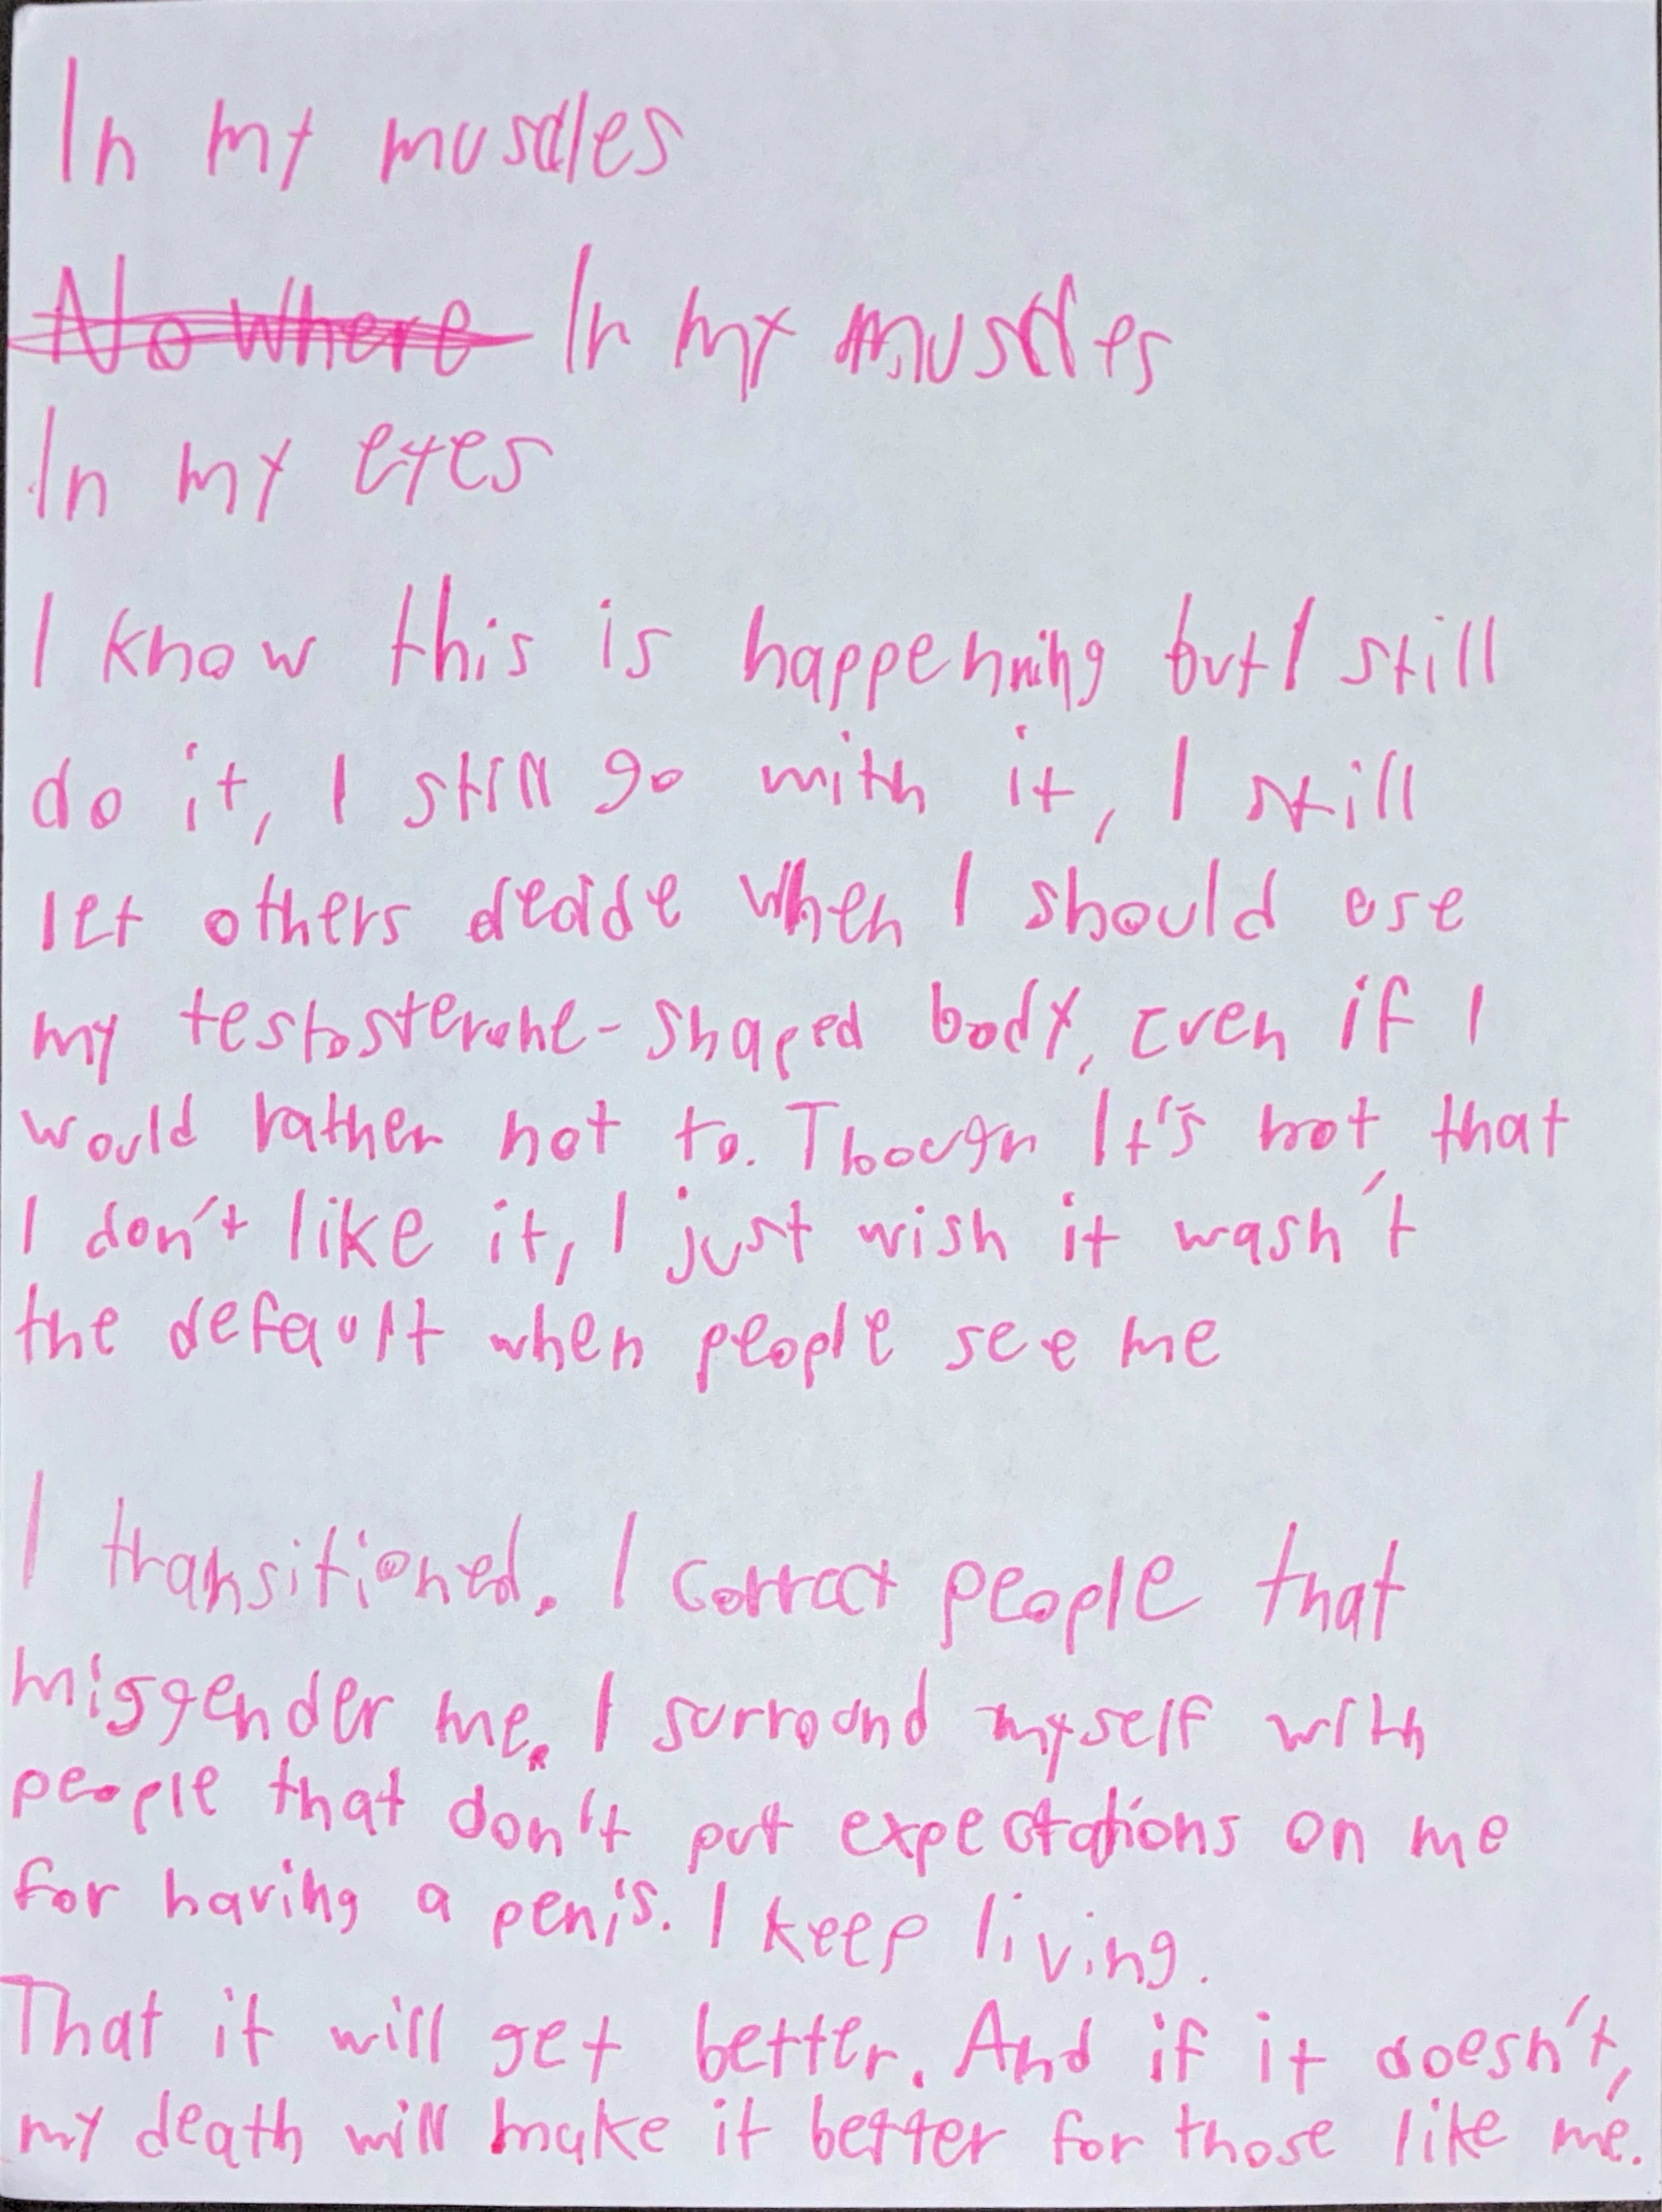 In my muscles
Nowhere In my muscles
In my eyes
I know this is happenning but I still
do it, I still go with it, I still
let others decide when I should use
my testosterone-shaped body, Even if I
would rather not to. Though It's not that
I don't like it, I just wish it wasn't
the default when people see me
I transitioned. I correct people that
misgender me. I surround myself with
people that don't put expectations on me
for having a penis. I keep living.
That it will get better. And if it doesn't,
my death will make it better for those like me.